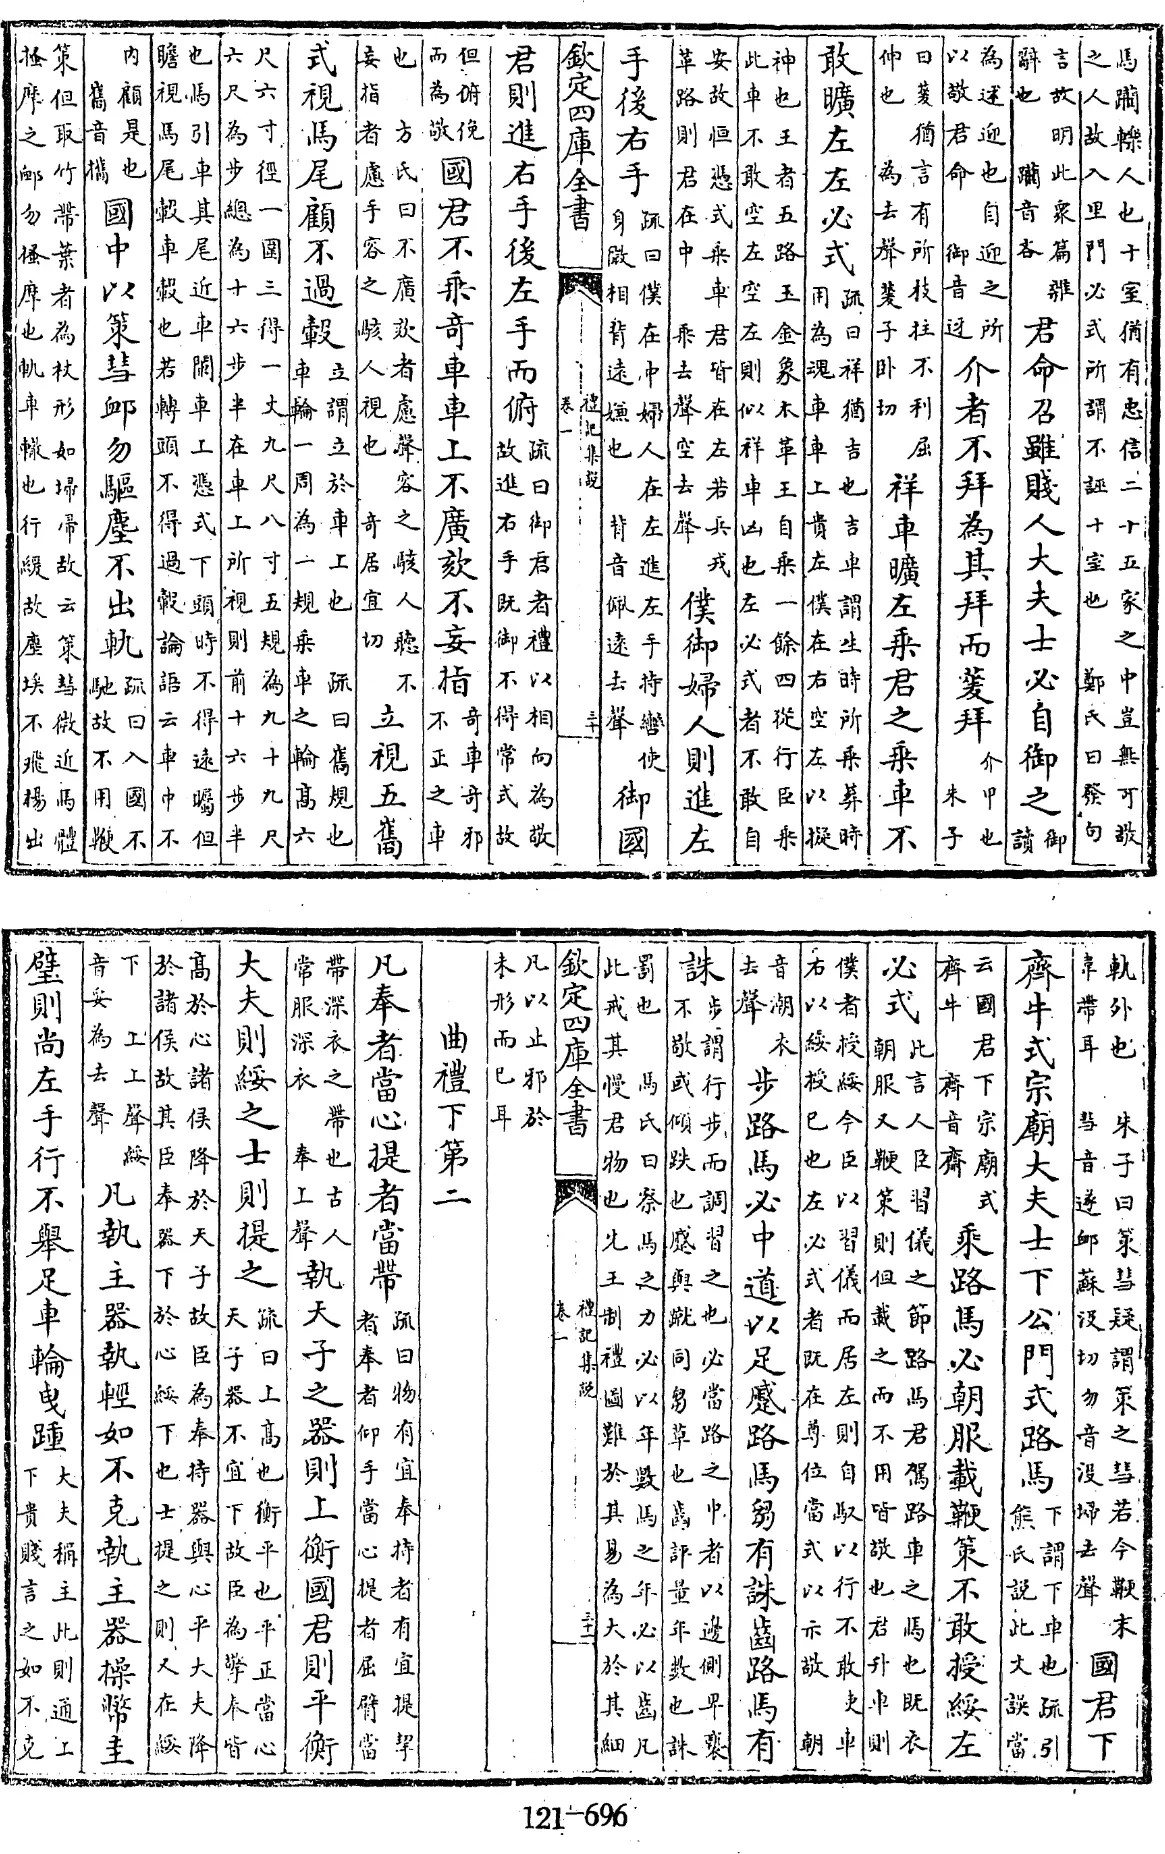 馬躪轢人也十室猶有忠信二十五家之中豈無可敬
之人故入里門必式所謂不誣十室也　鄭氏曰發句
言故明此衆篇雜
辭也　躪音吝
君命召雖賤人大夫士必自御之
御
讀
為迓迎也自迎之所
以敬君命　御音迓
介者不拜為其拜而蓌拜
介甲也
朱子
曰蓌猶言有所枝拄不利屈
伸也　為去聲蓌子卧切
祥車曠左乘君之乘車不
敢曠左左必式
疏曰祥猶吉也吉車謂生時所乘葬時
用為魂車車上貴左僕在右空左以擬
神也王者五路玉金象木革王自乘一餘四從行臣乘
此車不敢空左空左則似祥車凶也左必式者不敢自
安故恒憑式乘車君皆在左若兵戎
革路則君在中　乘去聲空去聲
僕御婦人則進左
手後右手
疏曰僕在中婦人在左進左手持轡使
身微相背遠嫌也　背音佩遠去聲
御國
欽定四庫全書
禮記集說
卷一
三十
君則進右手後左手而俯
疏曰御君者禮以相向為敬
故進右手既御不得常式故
但俯俛
而為敬
國君不乘奇車車上不廣欬不妄指
奇車奇邪
不正之車
也　方氏曰不廣欬者慮聲容之駭人聽不
妄指者慮手容之駭人視也　奇居宜切
立視五雟
式視馬尾顧不過轂
立謂立於車上也　疏曰雟規也
車輪一周為一規乘車之輪高六
尺六寸徑一圍三得一丈九尺八寸五規為九十九尺
六尺為步總為十六步半在車上所視則前十六步半
也馬引車其尾近車闌車上憑式下頭時不得遠矚但
瞻視馬尾轂車轂也若轉頭不得過轂論語云車中不
內顧是也
雟音攜
國中以策彗卹勿驅塵不出軌
疏曰入國不
馳故不用鞭
策但取竹帶葉者為杖形如埽帚故云策彗微近馬體
搔摩之卹勿搔摩也軌車轍也行緩故塵埃不飛揚出
軌外也　朱子曰策彗疑謂策之彗若今鞭末
韋帶耳　彗音遂卹蘇没切勿音没埽去聲
國君下
齊牛式宗廟大夫士下公門式路馬
下謂下車也疏引
熊氏説此文誤當
云國君下宗廟式
齊牛　齊音齋
乘路馬必朝服載鞭策不敢授綏左
必式
此言人臣習儀之節路馬君駕路車之馬也既衣
朝服又鞭策則但載之而不用皆敬也君升車則
僕者授綏今臣以習儀而居左則自馭以行不敢使車
右以綏授已也左必式者既在尊位當式以示敬　朝
音潮衣
去聲
步路馬必中道以足蹙路馬芻有誅齒路馬有
誅
步謂行步而調習之也必當路之中者以邊側卑褻
不敬或傾跌也蹙與蹴同芻草也齒評量年數也誅
罰也　馬氏曰察馬之力必以年數馬之年必以齒凡
此戒其慢君物也先王制禮圖難於其易為大於其細
欽定四庫全書
禮記集說
卷一
三十一
凡以止邪於
未形而已耳
曲禮下第二
凡奉者當心提者當帶
疏曰物有宜奉持者有宜提挈
者奉者仰手當心提者屈臂當
帶深衣之帶也古人
常服深衣　奉上聲
執天子之器則上衡國君則平衡
大夫則綏之士則提之
疏曰上高也衡平也平正當心
天子器不宜下故臣為擎奉皆
高於心諸侯降於天子故臣為奉持器與心平大夫降
於諸侯故其臣奉器下於心綏下也士提之則又在綏
下　上上聲綏
音妥為去聲
凡執主器執輕如不克執主器操幣圭
璧則尚左手行不舉足車輪曳踵
大夫稱主此則通上
下貴賤言之如不克
121-696